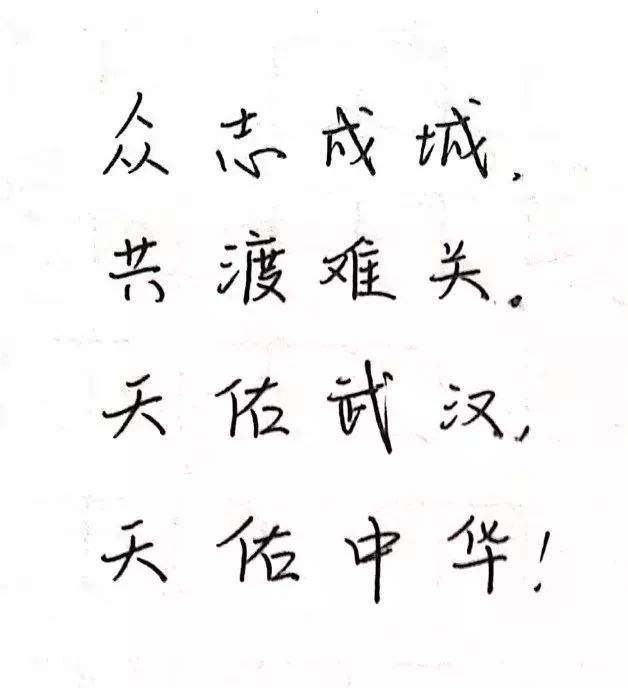 众志成城，
共渡难关。
天佑武汉，
天佑中华！